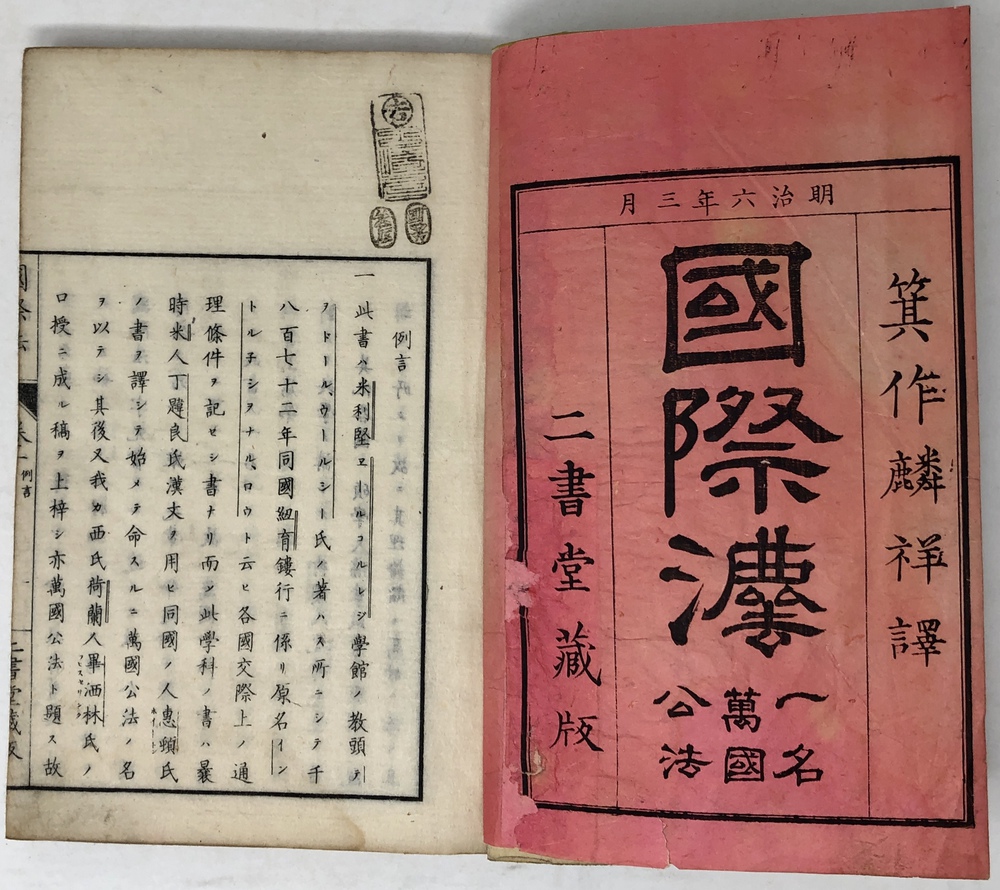 明治六年三月
箕作麟祥譯
國際灋
一名
萬國
公法
二書堂藏版
例言
一此書ハ米利堅ヱールコルレジ學館ノ教頭テ
ヲドールウールシー氏ノ著ハス所ニシテ千
八百七十二年同國紐育鏤行ニ係リ原名イン
トルナシヲナルロウト云ヒ各國交際上ノ通
理條件ヲ記セシ書ナリ而シ此學科ノ書ハ曩
時米人丁韙良氏漢文ヲ用ヒ同國ノ人惠頓氏
ノ書ヲ譯シテ始メテ命スルニ萬國公法ノ名
ヲ以テシ其後又我カ西氏荷蘭人畢洒林氏ノ
口授ニ成ル稿ヲ上梓シ亦萬國公法ト題ス故
國際法
卷一
例言
二書堂藏版